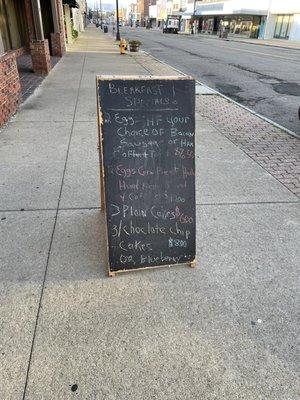 BREAKFAST
SPECIALS
2 Eggs HF Your
Choice OF Bacon
Sausage or Ham
Coffee
2 Eggs Corn Beef Hash
& Coffee
3 Plain Cakes $6.00
3/Choclate Chip
Cakes $8.00
Or, blueberry